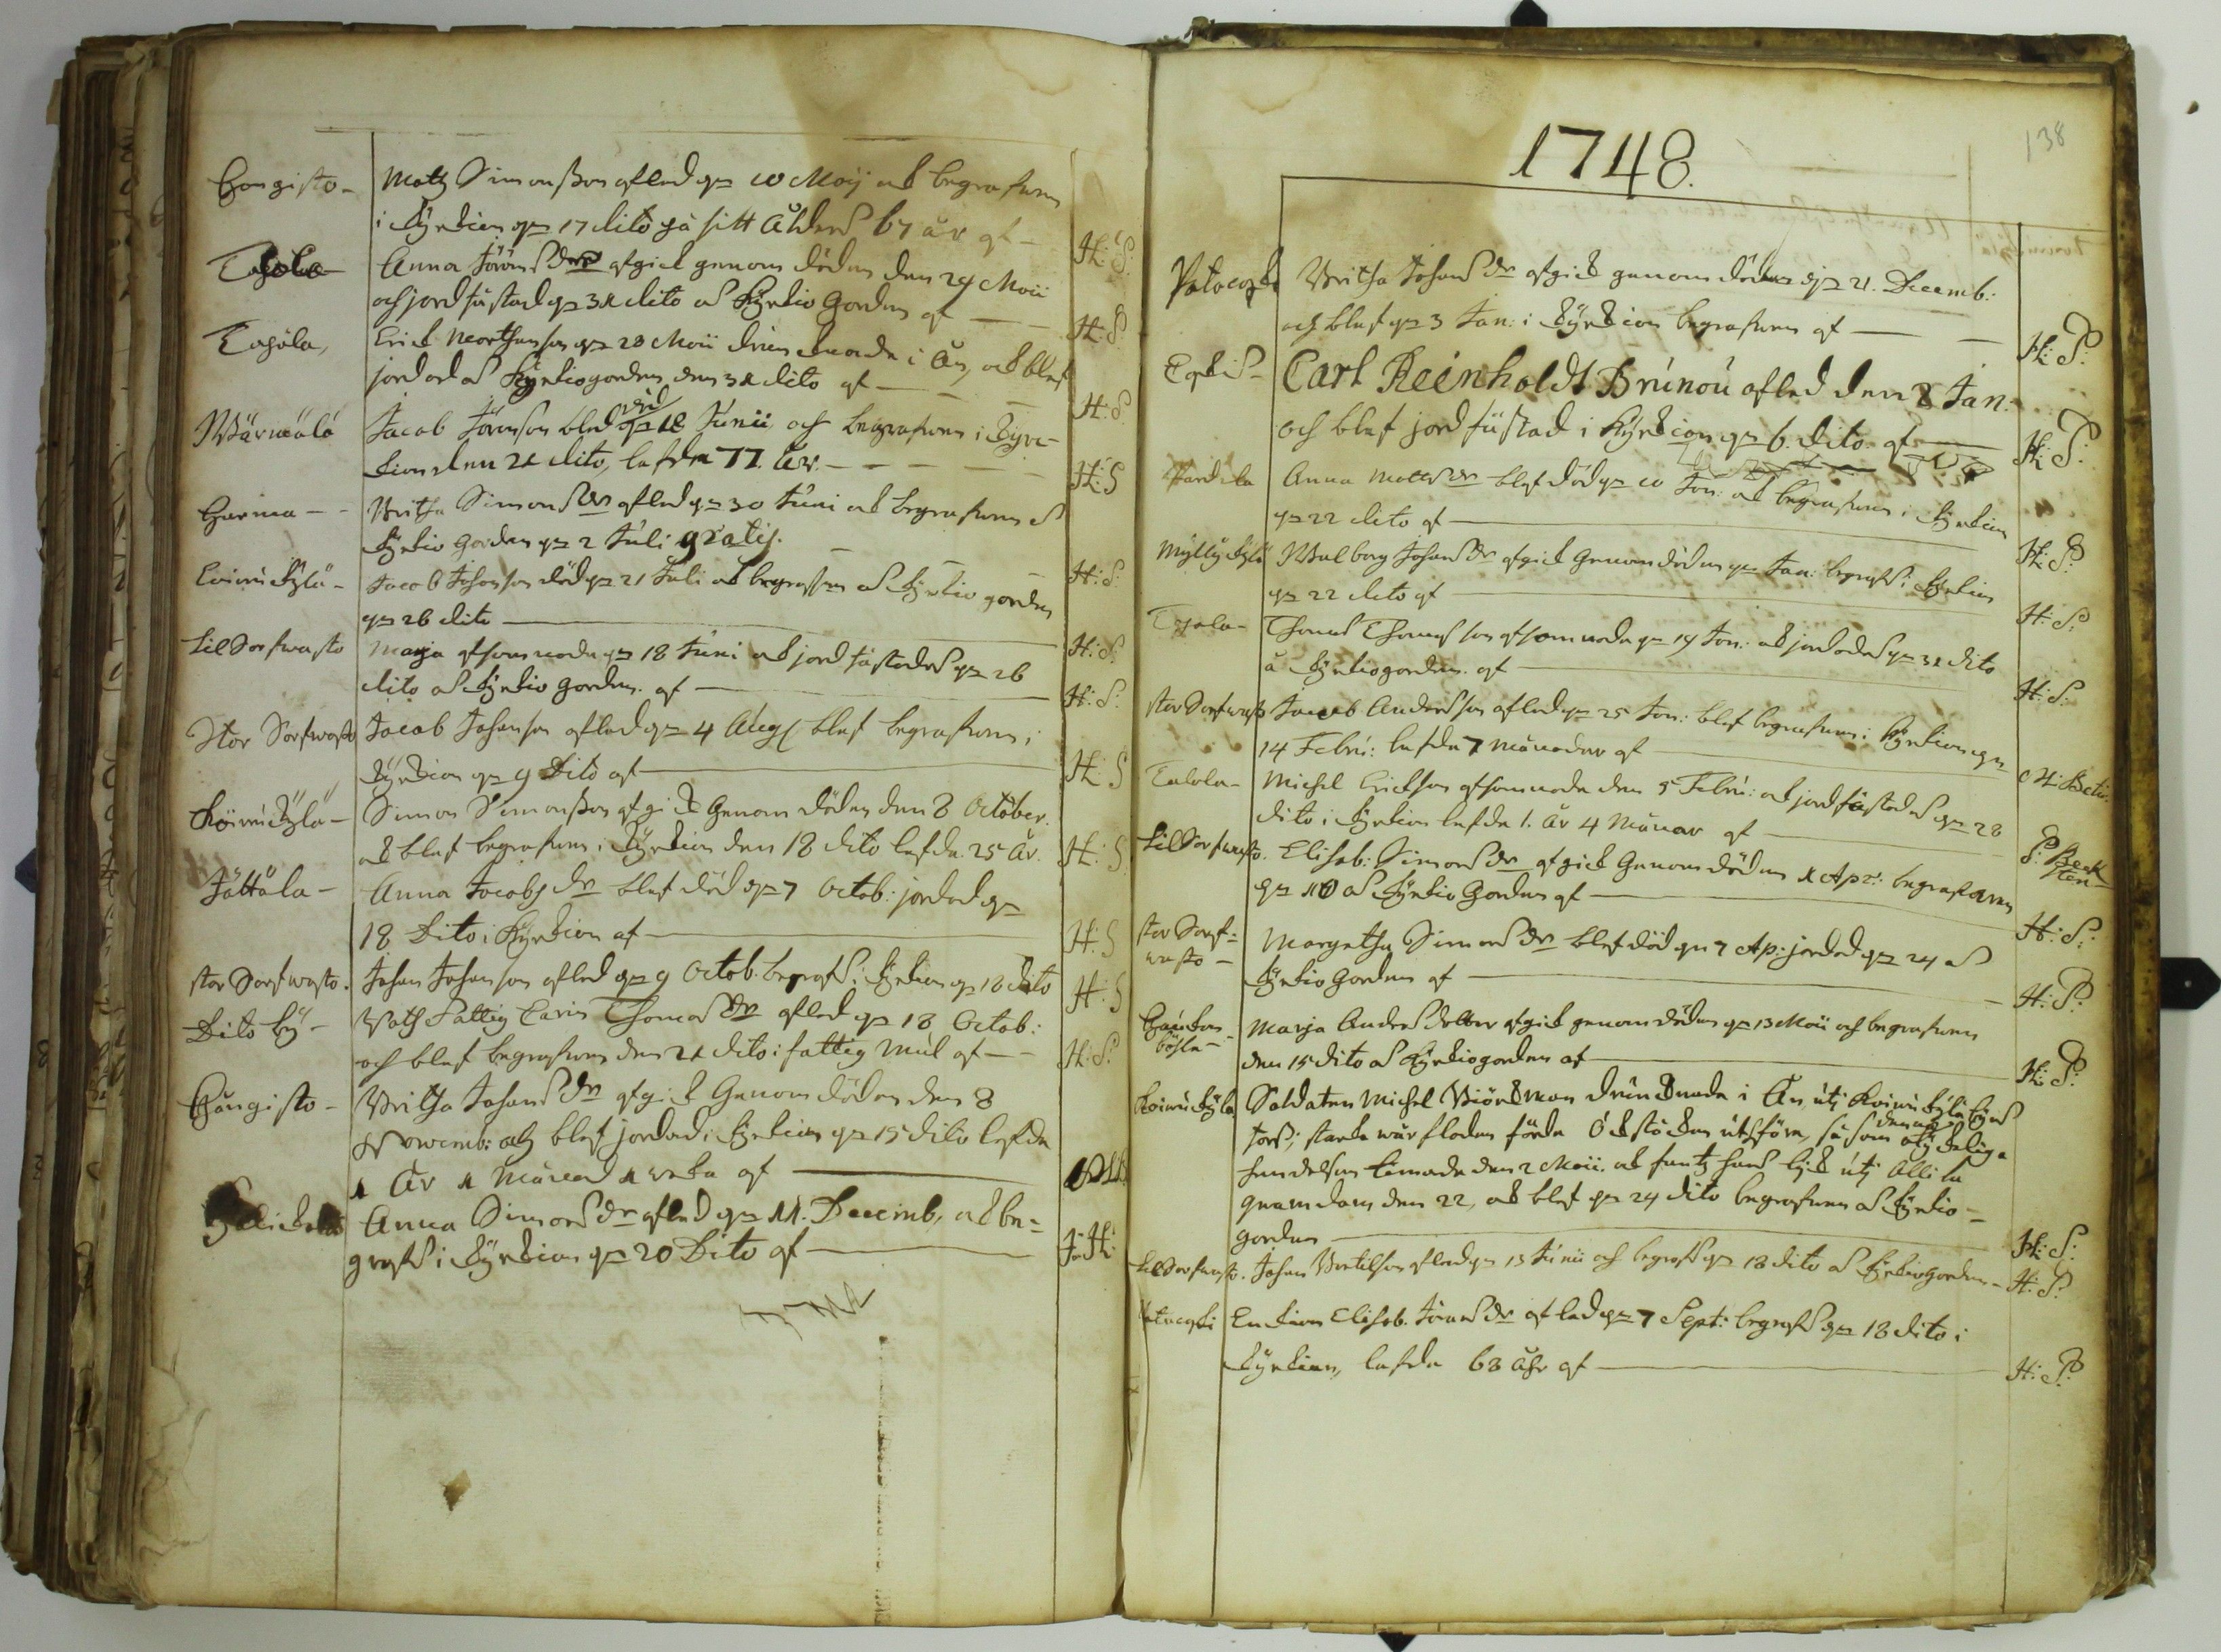 Cangisto-
Matz Simonsson afled d. 10 Maij ock begrafwen
i Kyrkian d. 17 dito på sitt Ålders 67 år af -
H: S:
Tajola
Anna Jöransdr afgick genom döden den 24 Maii
och jordfästad d. 31 dito å Kyrkio Gorden af -
H: S:
Tajola,
Erick Morthensson d. 28 Maii drunknade i Ån, ock blef
jordad å Kyrkiogorden den 31 dito af -
H: S:
Wärnälä
Jacob Jöransson blef död d. 18 Junii och begrafwen i Kyrc-
kian den 21 dito, lefde 77. år. -
H: S
Harma -
Britha Simonsdr afled d. 30 Juni ock begrafwen å
Kyrkio Gorden d. 2 Juli gratis.
H: S:
Koiwukylä -
Jacob Johansson död d. 21 Juli ock begrafwen å Kyrkio gorden
d. 26 dito
H: S:
Lill Sorfwasto
Marja afsomnade d. 18 Juni ock jordfästades d. 26
dito å Kyrkio Gorden. af -
H: S:
Stor Sorfwasto
Jacob Johansson afled d. 4 Aug blef begrafwen i
Kyrkian d. 9 Dito af
H: S
Koiwukylä -
Simon Simonsson afgick Genom döden den 8 October.
ock blef begrafwen i Kyrkian den 18 dito lefde 25 år.
H: S
Jättälä -
Anna Jacobsdr blef död d. 7 Octob: jordad d.
18 Dito i Kyrkian af
H: S
stor Sorfwasto.
Johan Johansson afled d. 9 Octob. begrofs i Kyrkian d. 18 dito
H: S
Dito by -
Roth Fattig Carin Thomasdr afled d. 18 Octob:
och blef begrafwen den 21 dito i fattig mul af -
H: S:
Hangisto -
Britha Johansdr afgick Genom döden den 8
Novemb: och blef jordad i Kyrkian d. 15 dito lefde
1 År 1 Månad 1 weka af
Anna Simonsdr afled d. 11. Decemb, ock be=
grofs i Kyrkian d. 20 Dito af
J: H:
138
1748.
Britha Johansdr afgick genom döden d. 21. Decemb:
och blef d. 3 Jan: i Kyrkian begrafwen af -
H: S:
Eskis-
Carl Reinholdt Brunou afled den 2 Jan:
och blef jordfästad i Kyrkian d. 6. dito. af
H: S:
Anna Mattsdr blef död d. 10 Jan: ock begrafwen i Kyrkian
d. 22 dito af
H: S:
Myllykylä
Walborg Johansdr afgick Genom döden d. Jan: begrofs i Kyrkian
d. 22 dito af
H: S:
Tajola-
Thomas Thomasson afsomnade d. 14 Jan: ock jordades d. 31 dito
å Kyrkiogorden. af
H: S:
stor Sorfwasto
Jacob Andersson afled d. 25 Jan: blef begrafwen i Kyrkian d.
14 Febru: lefde 7 månader af
Talola-
Michel Erickson afsomnade den 5 Febru: ock jordfästades d. 28
dito i Kyrkian lefde 1. År 4 Månar af
Lill Sorfwasto.
Elisab: Simonsdr afgick Genom döden 1 Apr: begrafwen
d. 10 å Kyrkio Gorden af
H: S:
stor Sorf=
wasto -
Margetha Simonsdr blef död d. 7 Ap: jordad d. 24 å
Kyrkio Gorden af
H: S:
böhle -
Marja Andersdotter afgick genom döden d. 13 Maii och begrafwen
den 15 dito å Kyrkiogorden af
H: S:
Koiwukylä
Soldaten Michel Biörkman drunknade i Ån uti Koiwukylä byes
fors; starka wår floden förde Ockstocken utföre, så som denna olyckelige
händelsen timade den 2 Maii. ock fantz hans lijk uti Alli la
quarndam den 22, ock blef d. 24 dito begrafwen å Kyrkio-
gorden
H: S:
Lill Sorfwasto.
Johan Bertilsson afled d. 13 Junii och begrofs d. 18 dito å Kyrkiogorden -
H: S:
Enkian Elisab. Jöransdr afled d. 7 Sept: begrofs d. 18 dito i
Kyrkian, lefde 68 åhr af
H: S: